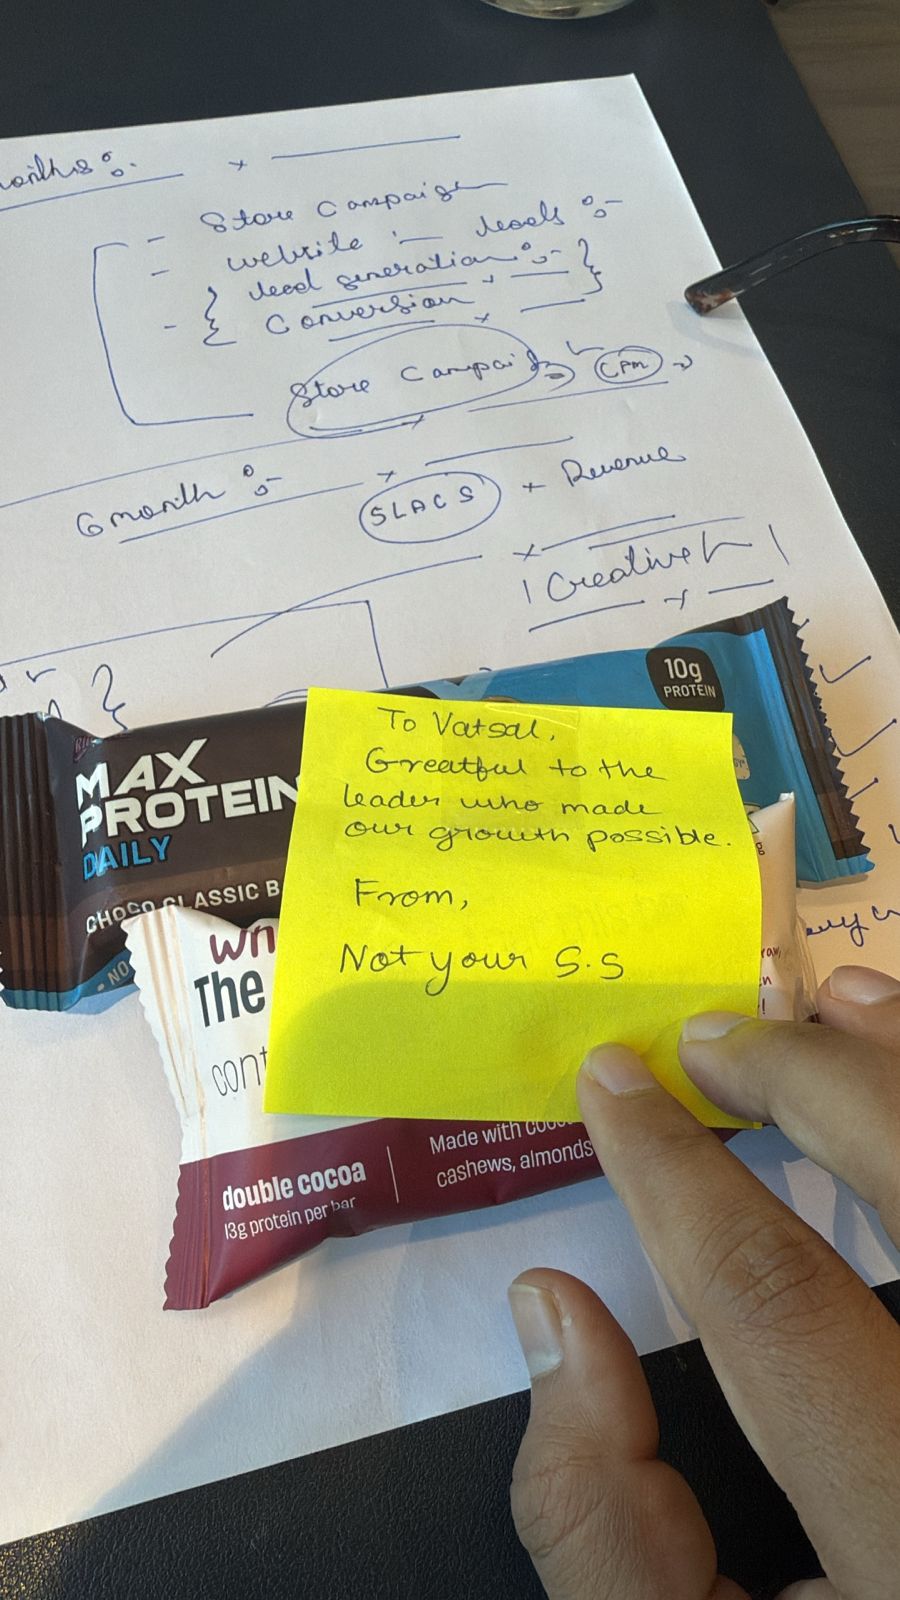 onths :-
- Store Campaign
- website :- leads :-
lead generation :-
- Conversion
Store Campaign
CPM
6 month :-
SLACS + Revenue
Creative
10g
PROTEIN
MAX
PROTEIN
DAILY
CHOCO CLASSIC B
NO
To Vatsal,
Greatful to the
leader who made
our growth possible.
From,
Not your S.S
The
cont
double cocoa
13g protein per bar
Made with coco
cashews, almonds